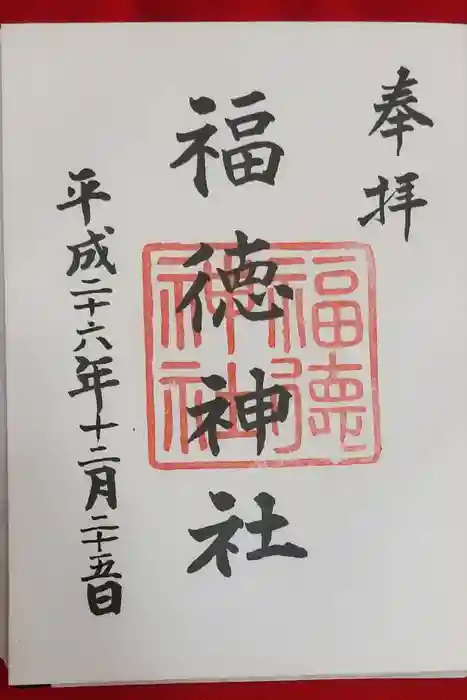 奉拝
福徳神社
福徳
神社
平成二十六年十二月二十五日